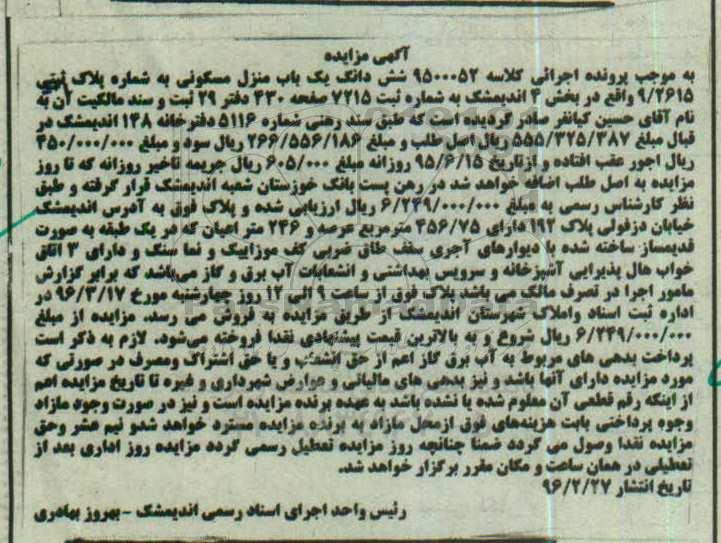 آگهی مزایده
به موجب پرونده اجرائی کلاسه ۹۵۰۰۰۵۲ شش دانگ یک باب منزل مسکونی به شماره پلاک ثبتی
۹/۲۶۱۵ واقع در بخش ۴ اندیمشک به شماره ثبت ۷۲۱۵ صفحه ۴۳۰ دفتر ۲۹ ثبت و سند مالکیت آن به
نام آقای حسین کیانفر صادر گردیده است که طبق سند رهنی شماره ۵۱۱۶ دفترخانه ۱۴۸ اندیمشک در
قبال مبلغ ۵۵۵/۳۲۵/۳۸۷ ریال اصل طلب و مبلغ ۲۶۶/۵۵۶/۱۸۶ ریال سود و مبلغ ۴۵۰/۰۰۰/۰۰۰
ریال اجور عقب افتاده و ازتاریخ ۹۵/۶/۱۵ روزانه مبلغ ۶۰۵/۰۰۰ ریال جریمه تاخیر روزانه که تا روز
مزایده به اصل طلب اضافه خواهد شد در رهن پست بانک خوزستان شعبه اندیمشک قرار گرفته و طبق
نظر کارشناس رسمی به مبلغ ۶/۲۴۹/۰۰۰/۰۰۰ ریال ارزیابی شده و پلاک فوق به آدرس اندیمشک
خیابان دزفولی پلاک ۱۹۲ دارای ۴۵۶/۷۵ مترمربع عرصه و ۲۴۶ متر اعیان که در یک طبقه به صورت
قدیمساز ساخته شده با دیوارهای آجری سقف طاق ضربی کف موزاییک و نما سنگ و دارای ۳ اتاق
خواب هال پذیرایی آشپزخانه و سرویس بهداشتی و انشعابات آب برق و گاز می‌باشد که برابر گزارش
مامور اجرا در تصرف مالک می باشد پلاک فوق از ساعت ۹ الی ۱۲ روز چهارشنبه مورخ ۹۶/۳/۱۷ در
اداره ثبت اسناد واملاک شهرستان اندیمشک از طریق مزایده به فروش می رسد. مزایده از مبلغ
۶/۲۴۹/۰۰۰/۰۰۰ ریال شروع و به بالاترین قیمت پیشنهادی نقدا فروخته می‌شود. لازم به ذکر است
پرداخت بدهی های مربوط به آب برق گاز اعم از حق انشعاب و یا حق اشتراک ومصرف در صورتی که
مورد مزایده دارای آنها باشد و نیز بدهی های مالیاتی و عوارض شهرداری و غیره تا تاریخ مزایده اعم
از اینکه رقم قطعی آن معلوم شده یا نشده باشد به عهده برنده مزایده است و نیز در صورت وجود مازاد
وجوه پرداختی بابت هزینه‌های فوق ازمحل مازاد به برنده مزایده مسترد خواهد شدو نیم عشر وحق
مزایده نقدا وصول می گردد ضمنا چنانچه روز مزایده تعطیل رسمی گردد مزایده روز اداری بعد از
تعطیلی در همان ساعت و مکان مقرر برگزار خواهد شد.
تاریخ انتشار ۹۶/۲/۲۷
رئیس واحد اجرای اسناد رسمی اندیمشک -بهروز بهادری